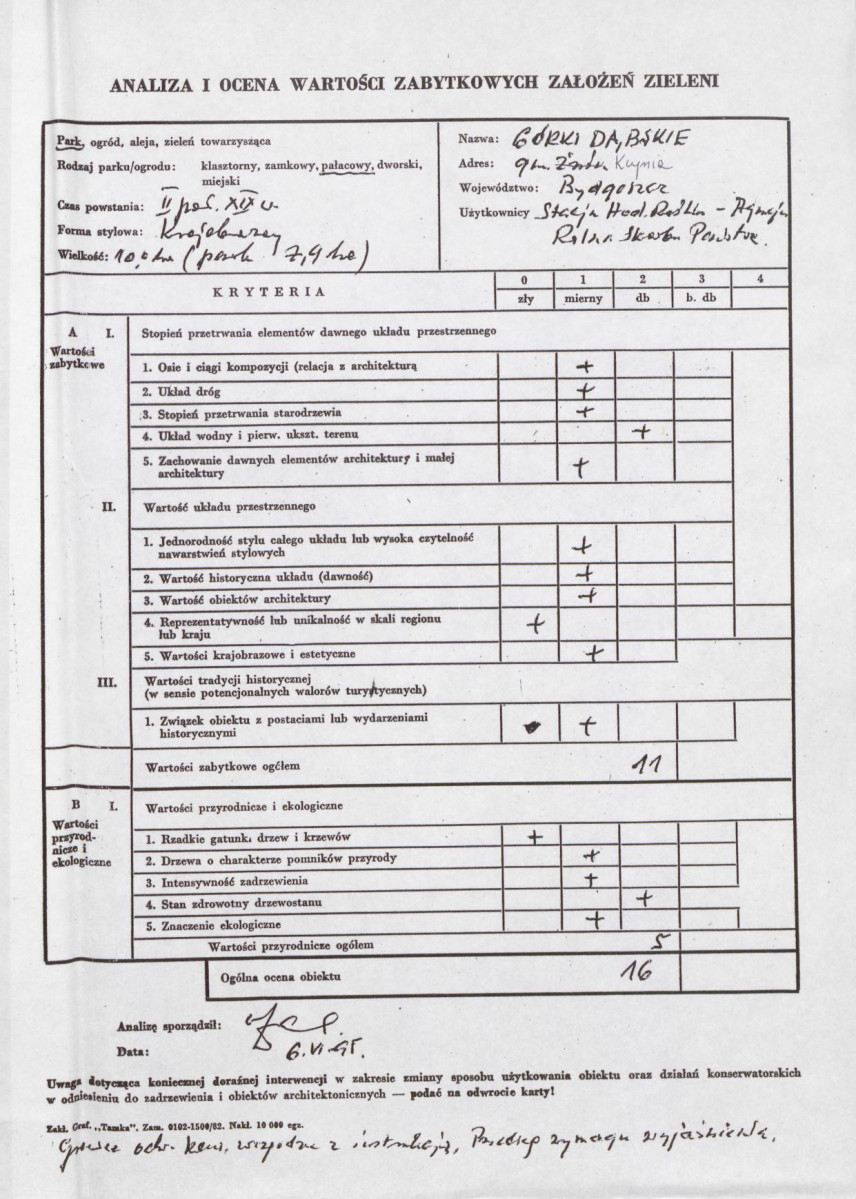 ANALIZA I OCENA WARTOŚCI ZABYTKOWYCH ZAŁOŻEŃ ZIELENI
Park, ogród, aleja, zieleń towarzysząca
Rodzaj parku/ogrodu: klasztorny, zamkowy, pałacowy, dworski,
miejski
Czas powstania: II poł. XIX w.
Forma stylowa: Krajobrazowy
Wielkość: 10,0 ha (park 7,9 ha)
Nazwa: GÓRKI DĄBSKIE
Adres: gm. Kcynia
Województwo: Bydgoszcz
Użytkownicy Stacja Hod. Roślin - Agencja
Rolna Skarbu Państwa.
KRYTERIA
0 1 2 3 4
zły mierny db b. db
A I. Stopień przetrwania elementów dawnego układu przestrzennego
Wartości
zabytkowe
1. Osie i ciągi kompozycji (relacja z architekturą +
2. Układ dróg +
3. Stopień przetrwania starodrzewia +
4. Układ wodny i pierw. ukszt. terenu +
5. Zachowanie dawnych elementów architektury i małej
architektury +
II. Wartość układu przestrzennego
1. Jednorodność stylu całego układu lub wysoka czytelność
nawarstwień stylowych +
2. Wartość historyczna układu (dawność) +
3. Wartość obiektów architektury +
4. Reprezentatywność lub unikalność w skali regionu
lub kraju +
5. Wartości krajobrazowe i estetyczne +
III. Wartości tradycji historycznej
(w sensie potencjonalnych walorów turystycznych)
1. Związek obiektu z postaciami lub wydarzeniami
historycznymi +
Wartości zabytkowe ogółem 11
B I. Wartości przyrodnicze i ekologiczne
Wartości
przyrod-
nicze i
ekologiczne
1. Rzadkie gatunki drzew i krzewów +
2. Drzewa o charakterze pomników przyrody +
3. Intensywność zadrzewienia +
4. Stan zdrowotny drzewostanu +
5. Znaczenie ekologiczne +
Wartości przyrodnicze ogółem 5
Ogólna ocena obiektu 16
Analizę sporządził:
Data: 6.VI.95.
Uwaga dotycząca koniecznej doraźnej interwencji w zakresie zmiany sposobu użytkowania obiektu oraz działań konserwatorskich
w odniesieniu do zadrzewienia i obiektów architektonicznych — podać na odwrocie karty!
Zakł. Graf. „Tamka". Zam. 0102-1500/82. Nakł. 10 000 egz.
z instrukcją, wymaga wyjaśnienia.